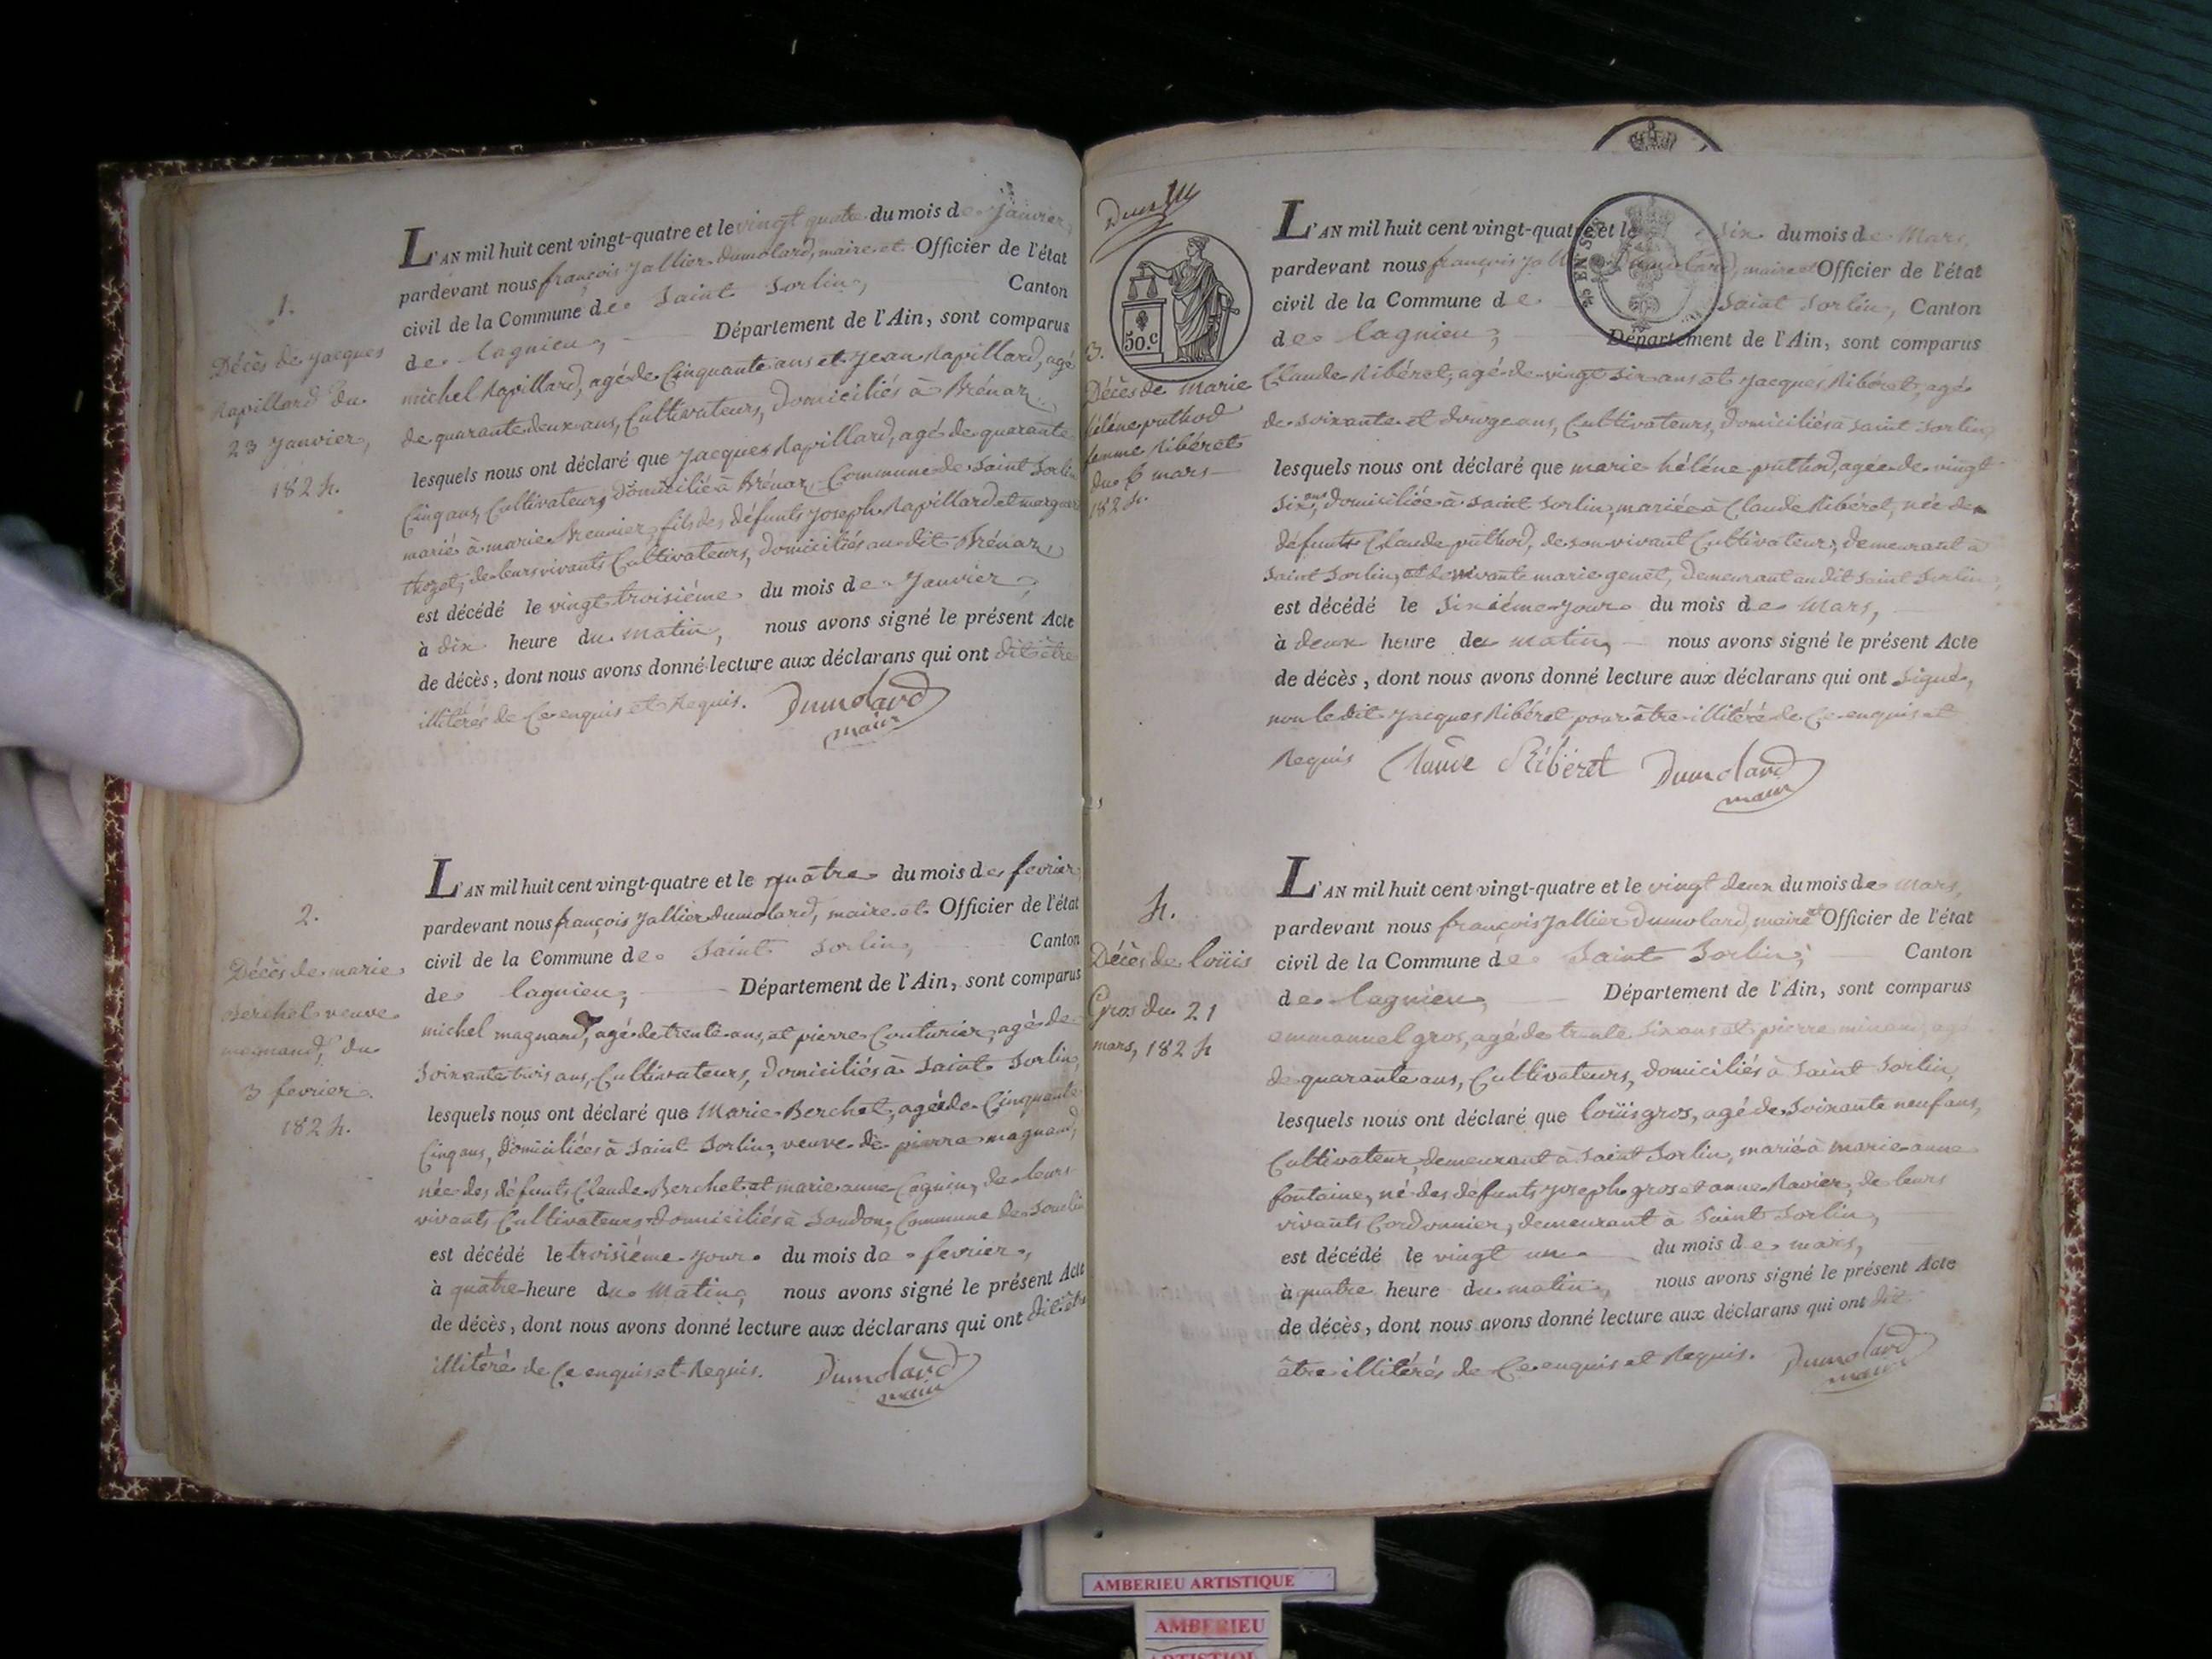 1.
Décès de Jacques
Rapillard du
23 Janvier,
1824.
L'AN mil huit cent vingt-quatre et le vingt quatre du mois de Janvier,
pardevant nous françois Jallier Dumolard, maire et Officier de l'état
civil de la Commune de Saint Sorlin, Canton
de lagnieu, Département de l'Ain, sont comparus
michel Rapillard, agé de Cinquante ans et Jean Rapillard, agé
de quarante deux ans, Cultivateurs, domiciliés à Brénaz,
lesquels nous ont déclaré que Jacques Rapillard, agé de quarante
Cinq ans, Cultivateur, domicilié à Brénaz, Commune de Saint Sorlin
marié à marie Brennier, fils des défunts Joseph Rapillard et
thozet, de leurs vivants Cultivateurs, domiciliés au dit Brénaz,
est décédé le vingt troisiéme du mois de Janvier,
à dix heure du matin, nous avons signé le présent Acte
de décès, dont nous avons donné lecture aux déclarans qui ont dit être
illitérés de Ce enquis et Requis. Dumolard
maire
2.
Décès de marie
Berchet veuve
magnand, du
3 fevrier
1824.
L'AN mil huit cent vingt-quatre et le quatre du mois de fevrier
pardevant nous françois Jallier Dumolard, maire et Officier de l'état
civil de la Commune de Saint Sorlin, Canton
de lagnieu, Département de l'Ain, sont comparus
michel magnand, agé de trente ans, et pierre Couturier, agé de
Soixante trois ans, Cultivateurs, domiciliés à Saint Sorlin,
lesquels nous ont déclaré que Marie Berchet, agée de Cinquante
Cinq ans, domiciliées à Saint Sorlin, veuve de pierre magnand,
née des défunts Claude Berchet et marie anne Cognin, de leurs
vivants Cultivateurs domiciliés à Soudon, Commune de Souclin
est décédé le troisiéme Jour du mois de fevrier,
à quatre heure du Matin, nous avons signé le présent Acte
de décès, dont nous avons donné lecture aux déclarans qui ont dit être
illitéré de Ce enquis et Requis. Dumolard
maire
50.c
3.
Décès de Marie
hélène puthod
femme Ribéret
du 6 mars
1824.
L'AN mil huit cent vingt-quatre et le six du mois de Mars,
pardevant nous françois Jallier Dumolard, maire et Officier de l'état
civil de la Commune de Saint Sorlin, Canton
de lagnieu, Département de l'Ain, sont comparus
Claude Ribéret, agé de vingt six ans et Jacques Ribéret, agé
de soixante et douze ans, Cultivateurs, domiciliés à Saint Sorlin,
lesquels nous ont déclaré que marie héléne puthod, agée de vingt
six ans, domiciliée à Saint Sorlin, mariée à Claude Ribéret, née de
défunt Claude puthod, de son vivant Cultivateur, demeurant à
Saint Sorlin, et de vivante marie genet, demeurant au dit Saint Sorlin,
est décédé le Sixiéme Jour du mois de Mars,
à deux heure de matin, nous avons signé le présent Acte
de décès, dont nous avons donné lecture aux déclarans qui ont Signé,
non le dit Jacques Ribéret pour être illitéré de Ce enquis et
Requis Claude Ribéret Dumolard
maire
4.
Décès de loüis
Gros du 21
mars, 1824
L'AN mil huit cent vingt-quatre et le vingt deux du mois de Mars,
pardevant nous françois Jallier Dumolard, maire et Officier de l'état
civil de la Commune de Saint Sorlin, Canton
de lagnieu, Département de l'Ain, sont comparus
emmanuel gros, agé de trente six ans et pierre minand, agé
de quarante ans, Cultivateurs, domiciliés à Saint Sorlin,
lesquels nous ont déclaré que loüis gros, agé de Soixante neuf ans,
Cultivateur, demeurant à Saint Sorlin, marié à marie anne
fontaine, né des défunts Joseph gros et anne Ravier, de leurs
vivants Cordonnier, demeurant à Saint Sorlin,
est décédé le vingt un du mois de mars,
à quatre heure du matin, nous avons signé le présent Acte
de décès, dont nous avons donné lecture aux déclarans qui ont dit
être illitérés de Ce enquis et Requis. Dumolard
maire
AMBERIEU ARTISTIQUE
AMBERIEU
ARTISTIQUE